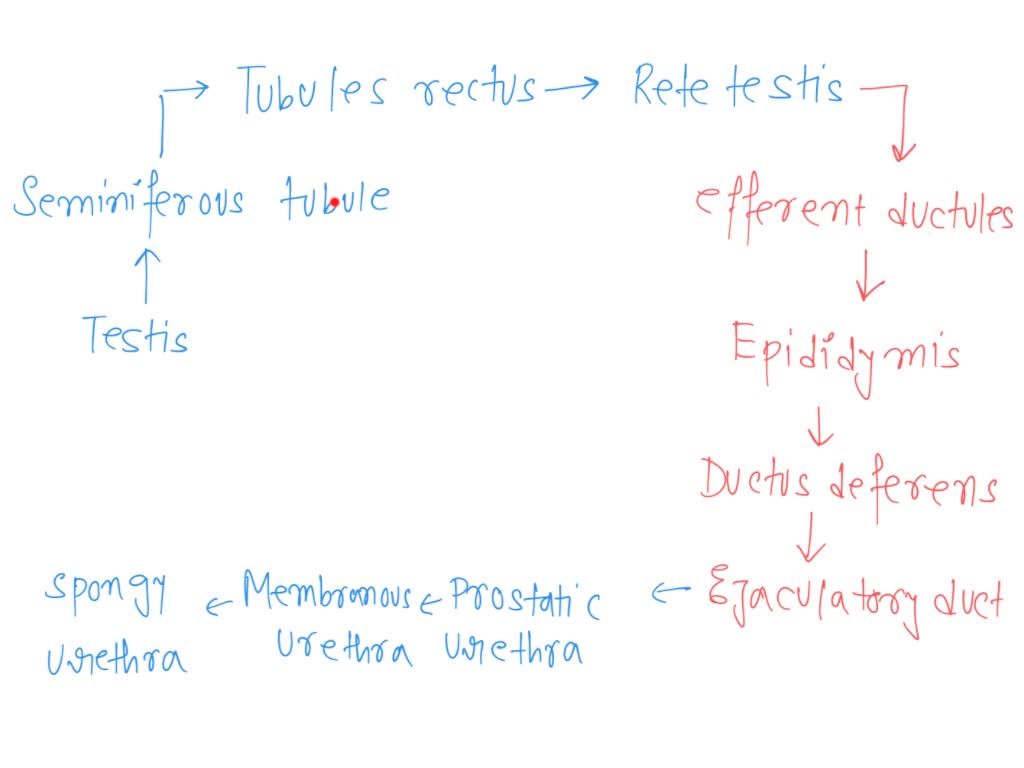 Tubules rectus → Rete testis
Seminiferous tubule
efferent ductules
Testis
Epididymis
Ductus deferens
Ejaculatory duct
← Prostatic urethra
← Membranous urethra
← spongy urethra